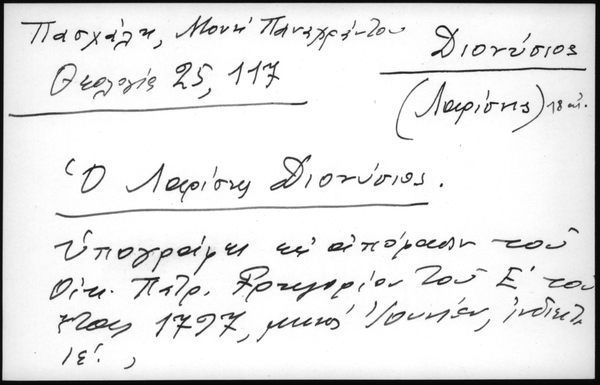 Πασχάλη, Μονή Παναχράντου
Θεολογία 25, 117
Διονύσιος
(Λαρίσης) 18 αἰ.
Ὁ Λαρίσης Διονύσιος.
ὑπογράφει εἰς ἀπόφασιν τοῦ
Οἰκ. Πατρ. Γρηγορίου τοῦ Ε' τοῦ
ἔτους 1797, μηνός Ἰουνίου, ἰνδικτ.
ιε'.,